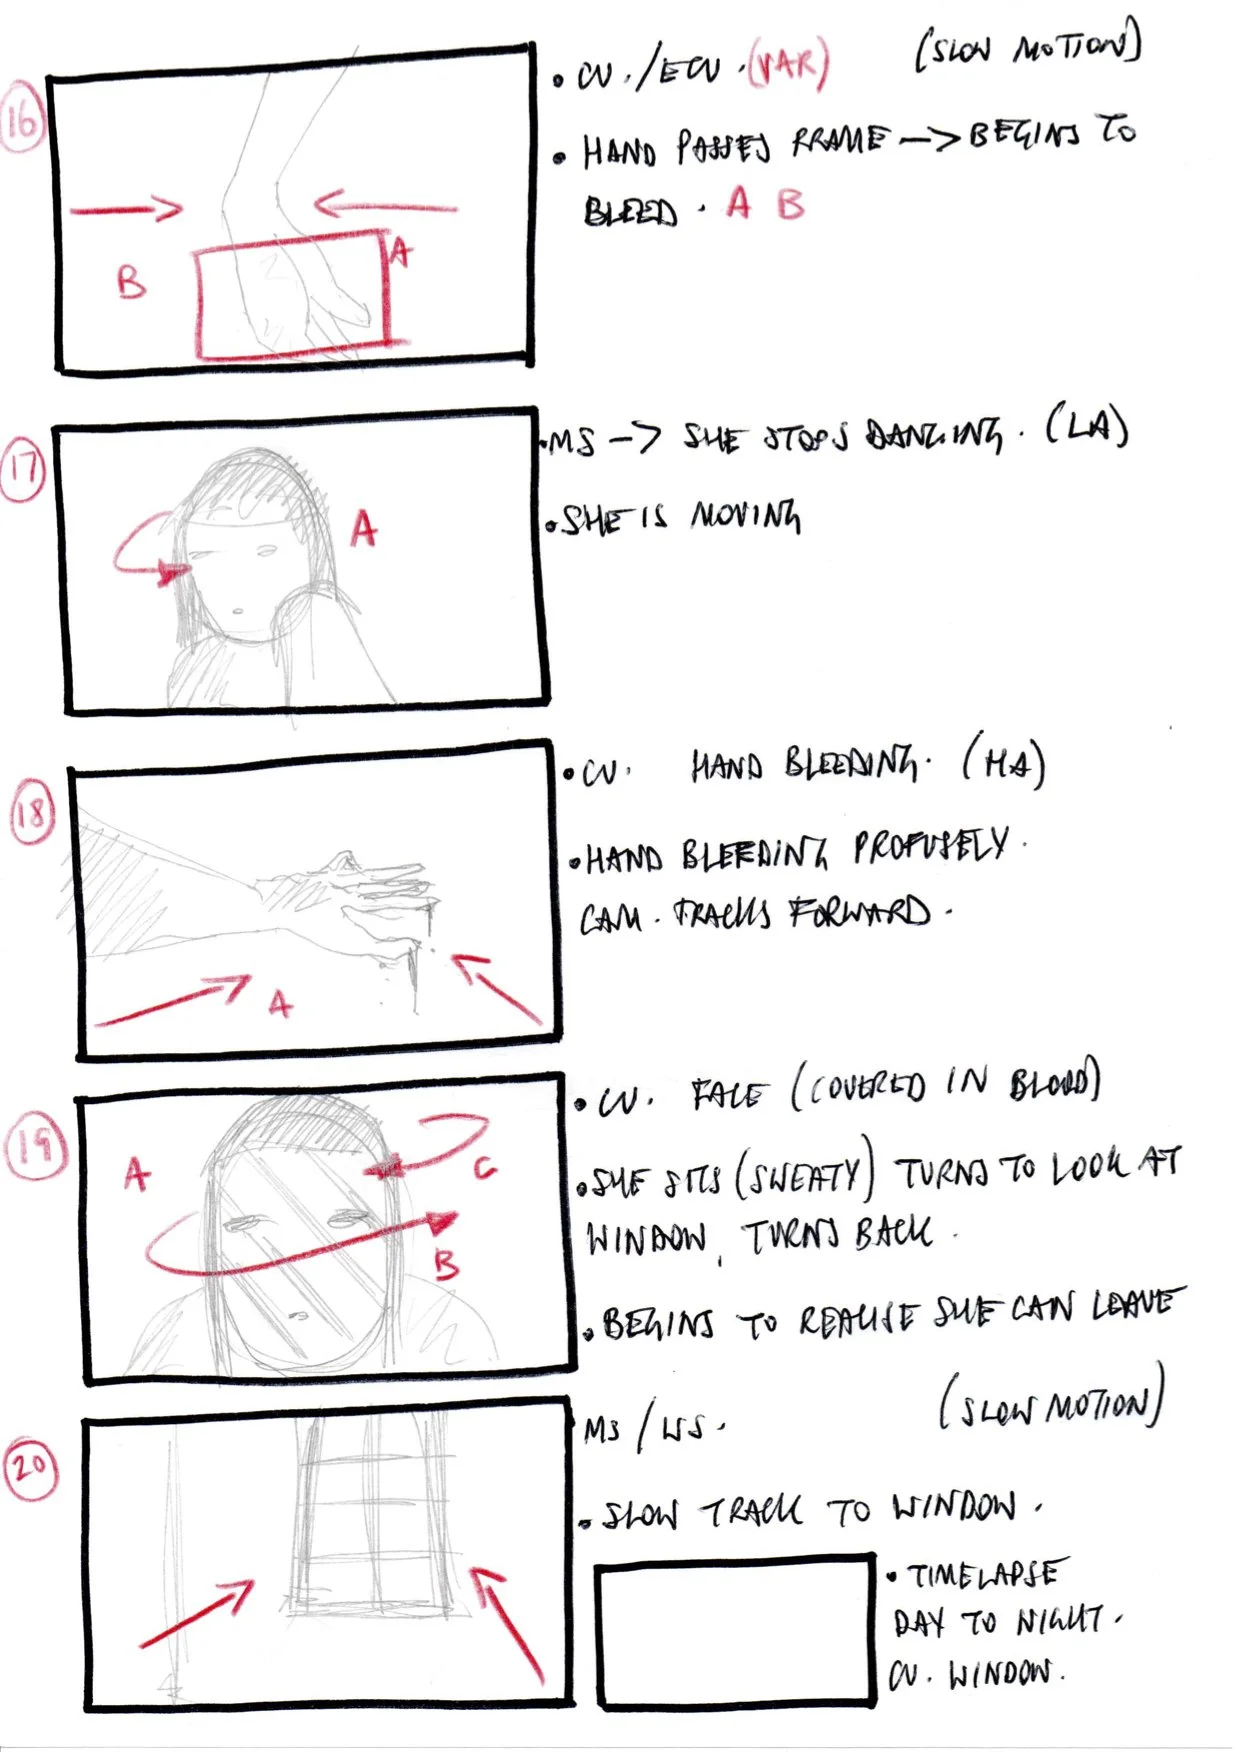 16
• CU./ECU. (VAR) (SLOW MOTION)
• HAND PASSES FRAME —> BEGINS TO
BLEED. A B
B
A
17
• MS —> SHE STOPS DANCING. (LA)
• SHE IS MOVING
A
18
• CU. HAND BLEEDING. (HA)
• HAND BLEEDING PROFUSELY.
CAM. TRACKS FORWARD.
A
19
• CU. FACE (COVERED IN BLOOD)
• SHE SITS (SWEATY) TURNS TO LOOK AT
WINDOW, TURNS BACK.
• BEGINS TO REALISE SHE CAN LEAVE
A
C
B
20
MS / WS. (SLOW MOTION)
• SLOW TRACK TO WINDOW.
• TIMELAPSE
DAY TO NIGHT.
CU. WINDOW.